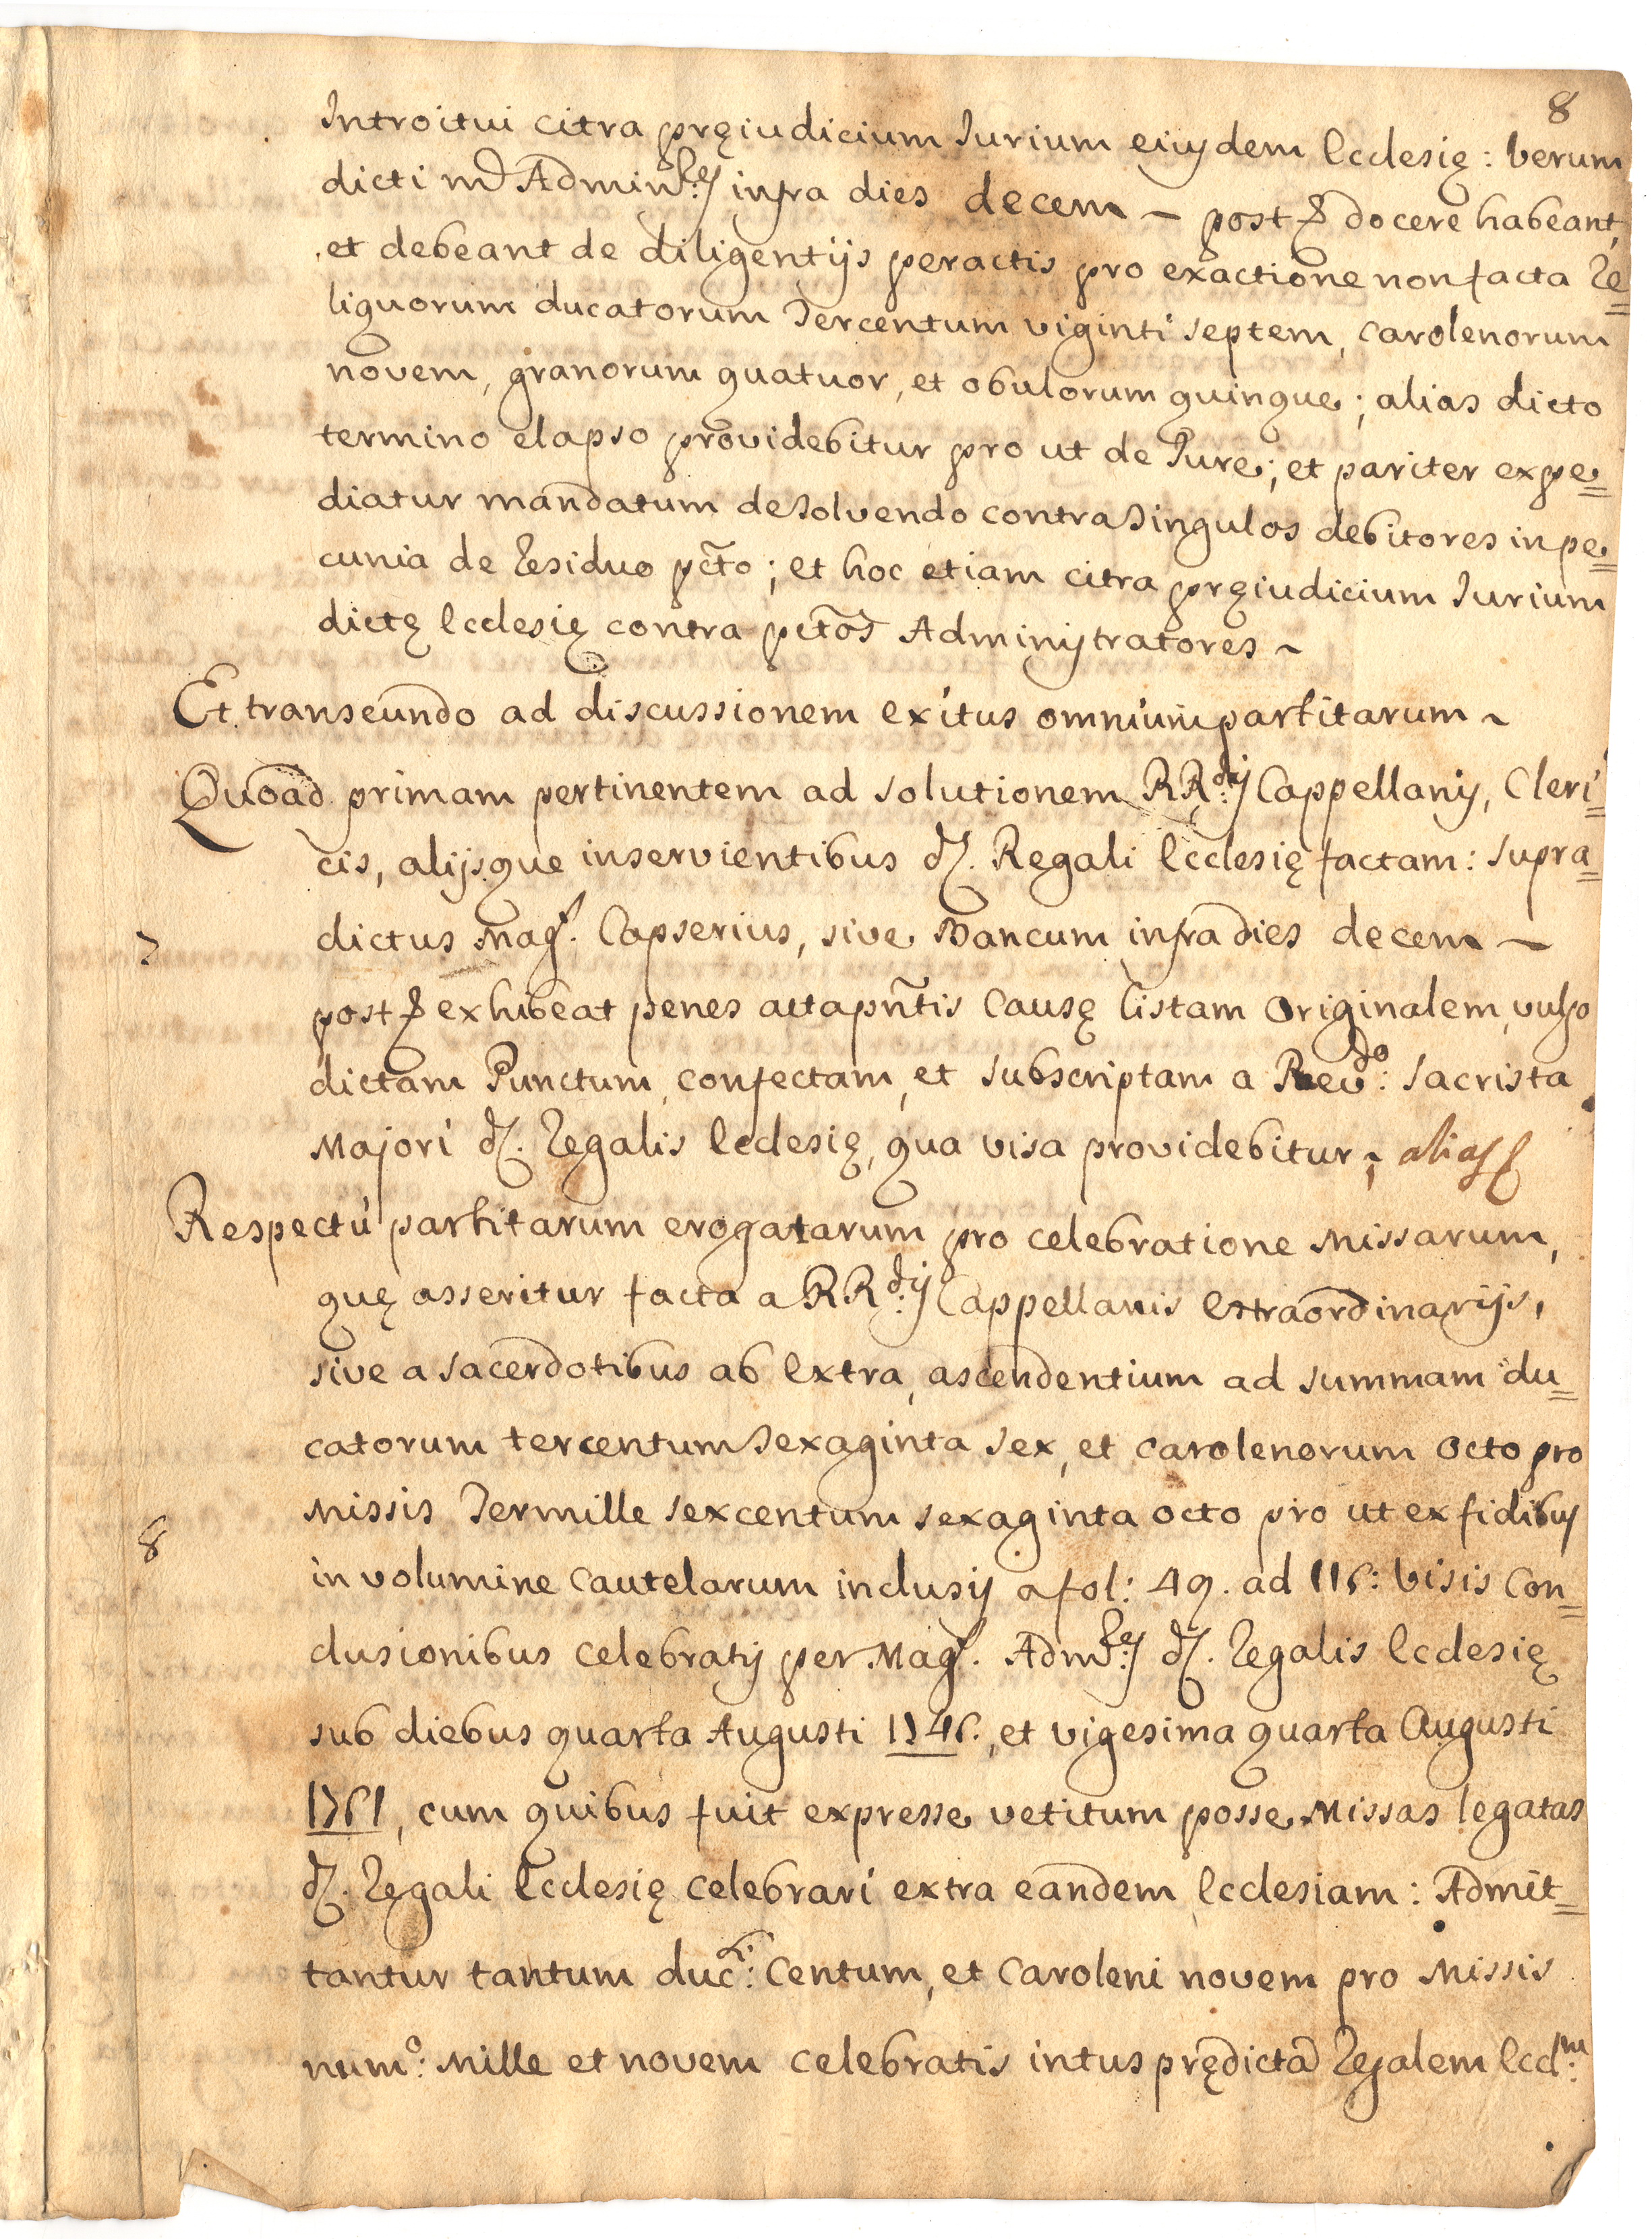 8
Introitui citra pręiudicium Iurium eiusdem Ecclesię: verum
dicti mci Adminres: infra dies decem — post docere habeant,
et debeant de diligentijs peractis pro exactione non facta re=
liquorum ducatorum Tercentum viginti septem, carolenorum
novem, granorum quatuor, et obulorum quinque; alias dicto
termino elapso providebitur pro ut de Iure; et pariter expe=
diatur mandatum de solvendo contra singulos debitores in pe=
cunia de residuo pcto; et hoc etiam citra pręiudicium Iurium
dictę Ecclesię contra pctos Administratores ~
Et transeundo ad discussionem exitus omnium partitarum ~
Quoad primam pertinentem ad solutionem RR:dis Cappellanis, Cleri=
cis, alijsque inservientibus d. Regali Ecclesię factam: supra=
7 dictus Mag. Capserius, sive Bancum infra dies decem —
post exhibeat penes acta pntis Causę listam originalem, vulgo
dictam Punctum, confectam, et subscriptam a Revdo: Sacrista
Majori d. regalis Ecclesię, qua visa providebitur ~; alias
Respectu partitarum erogatarum pro celebratione Missarum,
quę asseritur facta a RR:dis Cappellanis Extraordinarijs,
sive a sacerdotibus ab Extra, ascendentium ad summam du=
catorum tercentum sexaginta sex, et carolenorum octo pro
8 Missis Termille sexcentum sexaginta octo pro ut ex fidibus
in volumine cautelarum inclusis a fol: 49. ad 116: visis Con=
clusionibus celebratis per Mag. Admres: d. regalis Ecclesię
sub diebus quarta Augusti 1746., et vigesima quarta Augusti
1761, cum quibus fuit expresse vetitum posse Missas legatas
d. regali Ecclesię celebrari extra eandem Ecclesiam: Admit=
tantur tantum duc:ti Centum, et Caroleni novem pro Missis
numo: Mille et novem celebratis intus prędicta Regalem Eccl:m